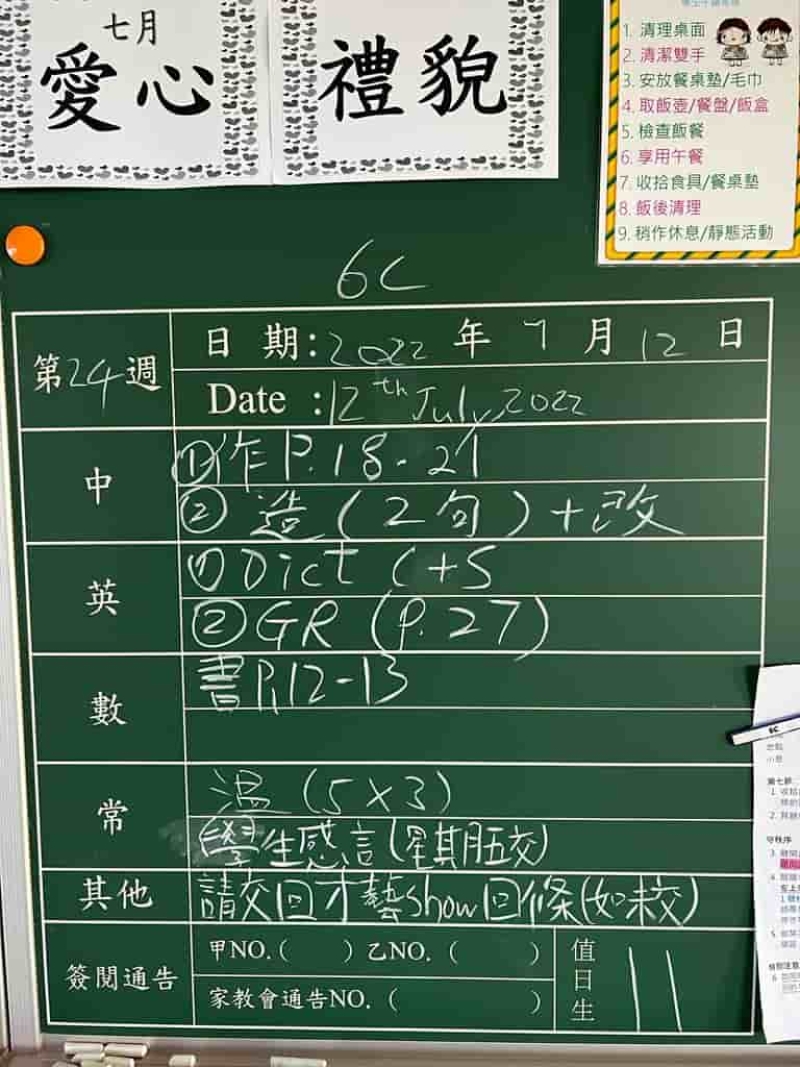 七月
愛心
禮貌
1. 清理桌面
2. 清潔雙手
3. 安放餐桌墊/毛巾
4. 取飯壺/餐盤/飯盒
5. 檢查飯餐
6. 享用午餐
7. 收拾食具/餐桌墊
8. 飯後清理
9. 稍作休息/靜態活動
6C
第24週
日 期: 2022 年 7 月 12 日
Date : 12th July, 2022
中
① 作 P.18-21
② 造 (2句) + 改
英
① Dict C+S
② GR (P.27)
數
書 P.12-13
常
溫 (5 X 3)
學生感言 (星期五交)
其他
請交回才藝show回條(如未交)
簽閱通告
甲NO. ( ) 乙NO. ( )
家教會通告NO. ( )
值日生
11
6C
第七節
守秩序